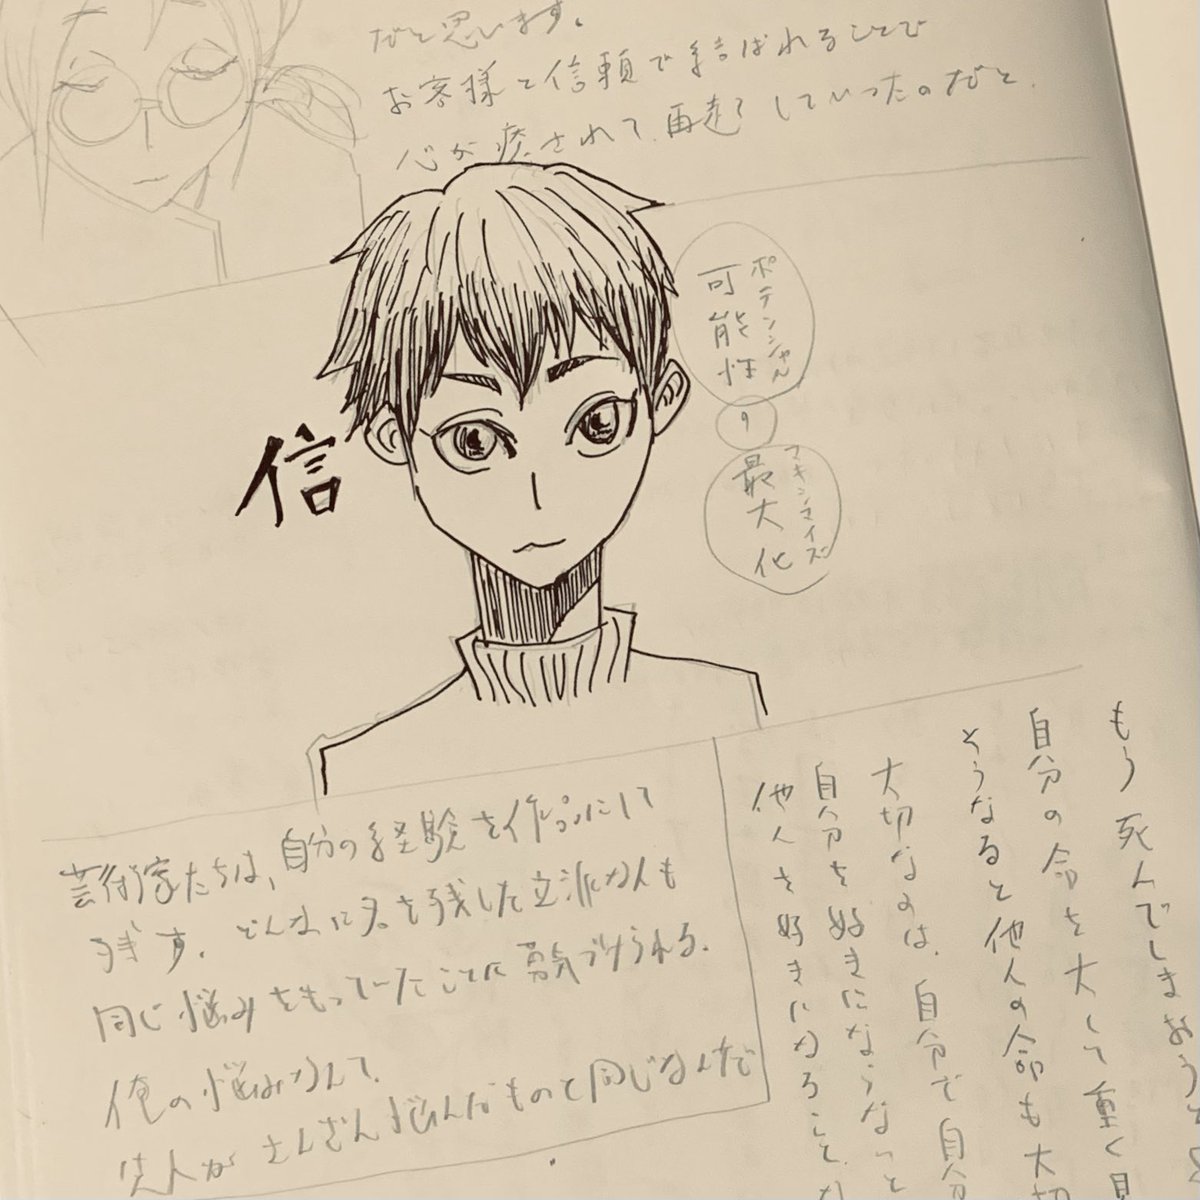 だと思います。
お客様と信頼で結ばれることで
心が癒されて、再起していったのだと、
信
ポテンシャル
可能性
の
マキシマイズ
最大化
芸術家たちは、自分の経験を作品にして
残す。どんなに名を残した立派な人も
同じ悩みをもっていたことに勇気づけられる。
俺の悩みなんて、
先人がさんざん悩んだものと同じなんだ
もう死んでしまおうと
自分の命を大して重く
そうなると他人の命も大切
大切なのは、自分で自分
自分を好きにならないと
他人を好きになること